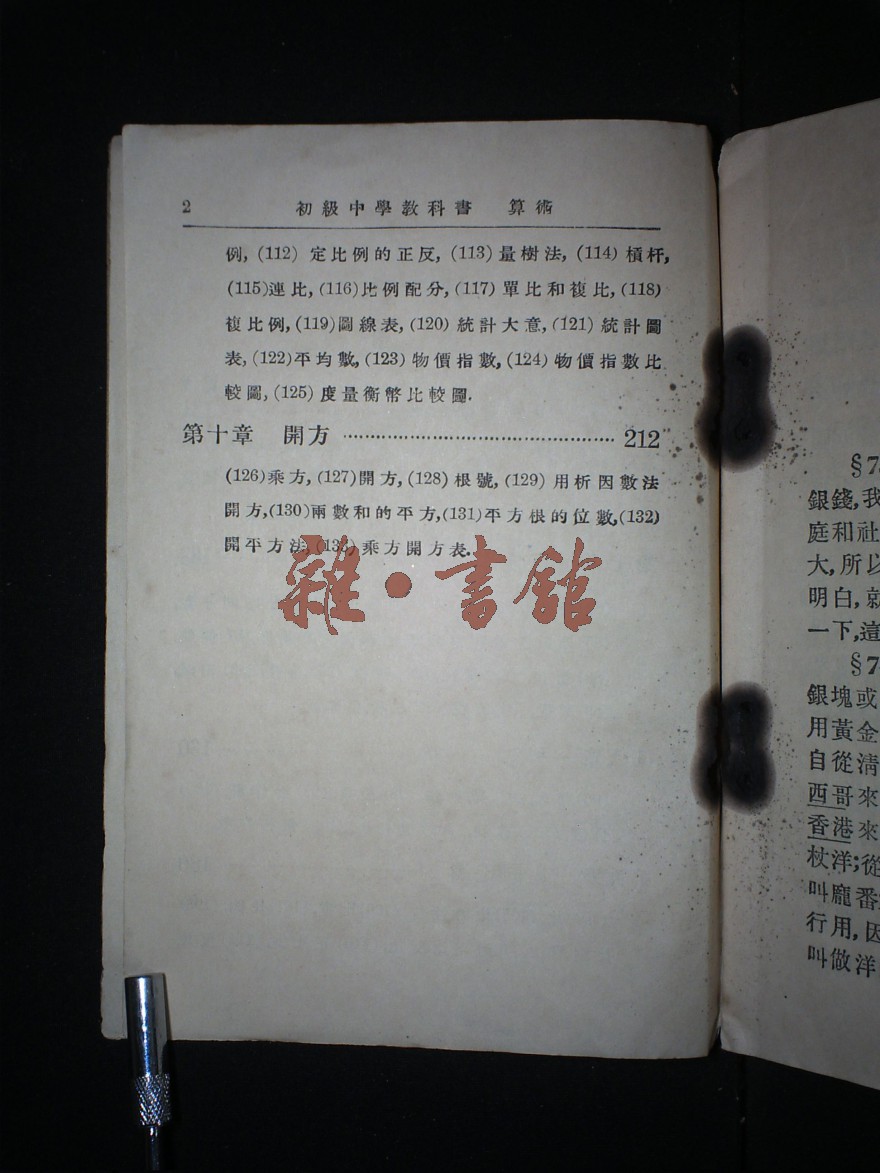 2 初級中學教科書 算術
例, (112) 定比例的正反, (113) 量樹法, (114) 槓杆,
(115)連比, (116)比例配分, (117) 單比和複比, (118)
複比例, (119)圖線表, (120) 統計大意, (121) 統計圖
表, (122)平均數, (123) 物價指數, (124) 物價指數比
較圖, (125) 度量衡幣比較圖.
第十章 開方 ………………………………………… 212
(126)乘方, (127)開方, (128) 根號, (129) 用析因數法
開方, (130)兩數和的平方, (131)平方根的位數, (132)
開平方法, (133) 乘方開方表.
雜·書館
§7
銀錢,我
庭和社
大,所以
明白,就
一下,這
§7
銀塊或
用黃金
自從清
西哥來
香港來
杖洋;從
叫龐番
行用,因
叫做洋